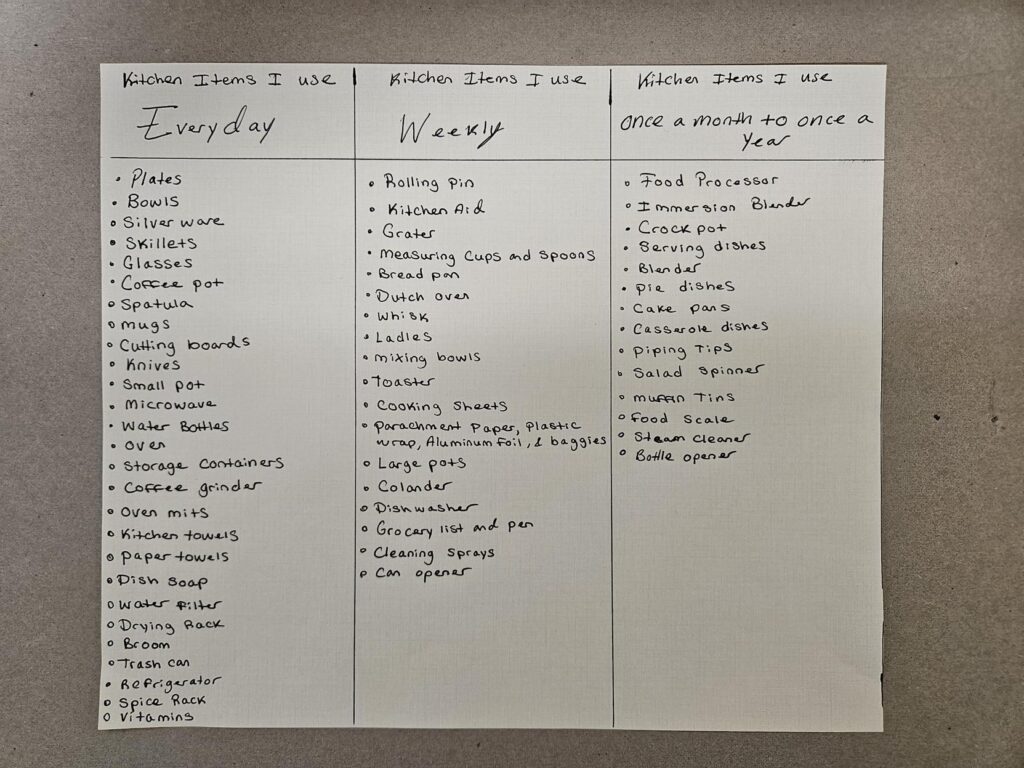 Kitchen Items I use
Everyday
• Plates
• Bowls
• Silver ware
• Skillets
• Glasses
• Coffee pot
• Spatula
• mugs
• Cutting boards
• Knives
• Small pot
• Microwave
• Water Bottles
• oven
• Storage Containers
• Coffee grinder
• Oven mits
• Kitchen towels
• paper towels
• Dish soap
• Water filter
• Drying Rack
• Broom
• Trash can
• Refrigerator
• Spice Rack
• Vitamins
Kitchen Items I use
Weekly
• Rolling pin
• Kitchen Aid
• Grater
• measuring cups and spoons
• Bread pan
• Dutch oven
• whisk
• Ladles
• mixing bowls
• Toaster
• Cooking sheets
• parachment paper, plastic
wrap, Aluminum foil, & baggies
• Large pots
• Colander
• Dishwasher
• Grocery list and pen
• Cleaning sprays
• Can opener
Kitchen Items I use
once a month to once a
Year
• Food Processor
• Immersion Blender
• Crock pot
• Serving dishes
• Blender
• pie dishes
• Cake pans
• Casserole dishes
• piping Tips
• Salad spinner
• muffin Tins
• food Scale
• Steam cleaner
• Bottle opener